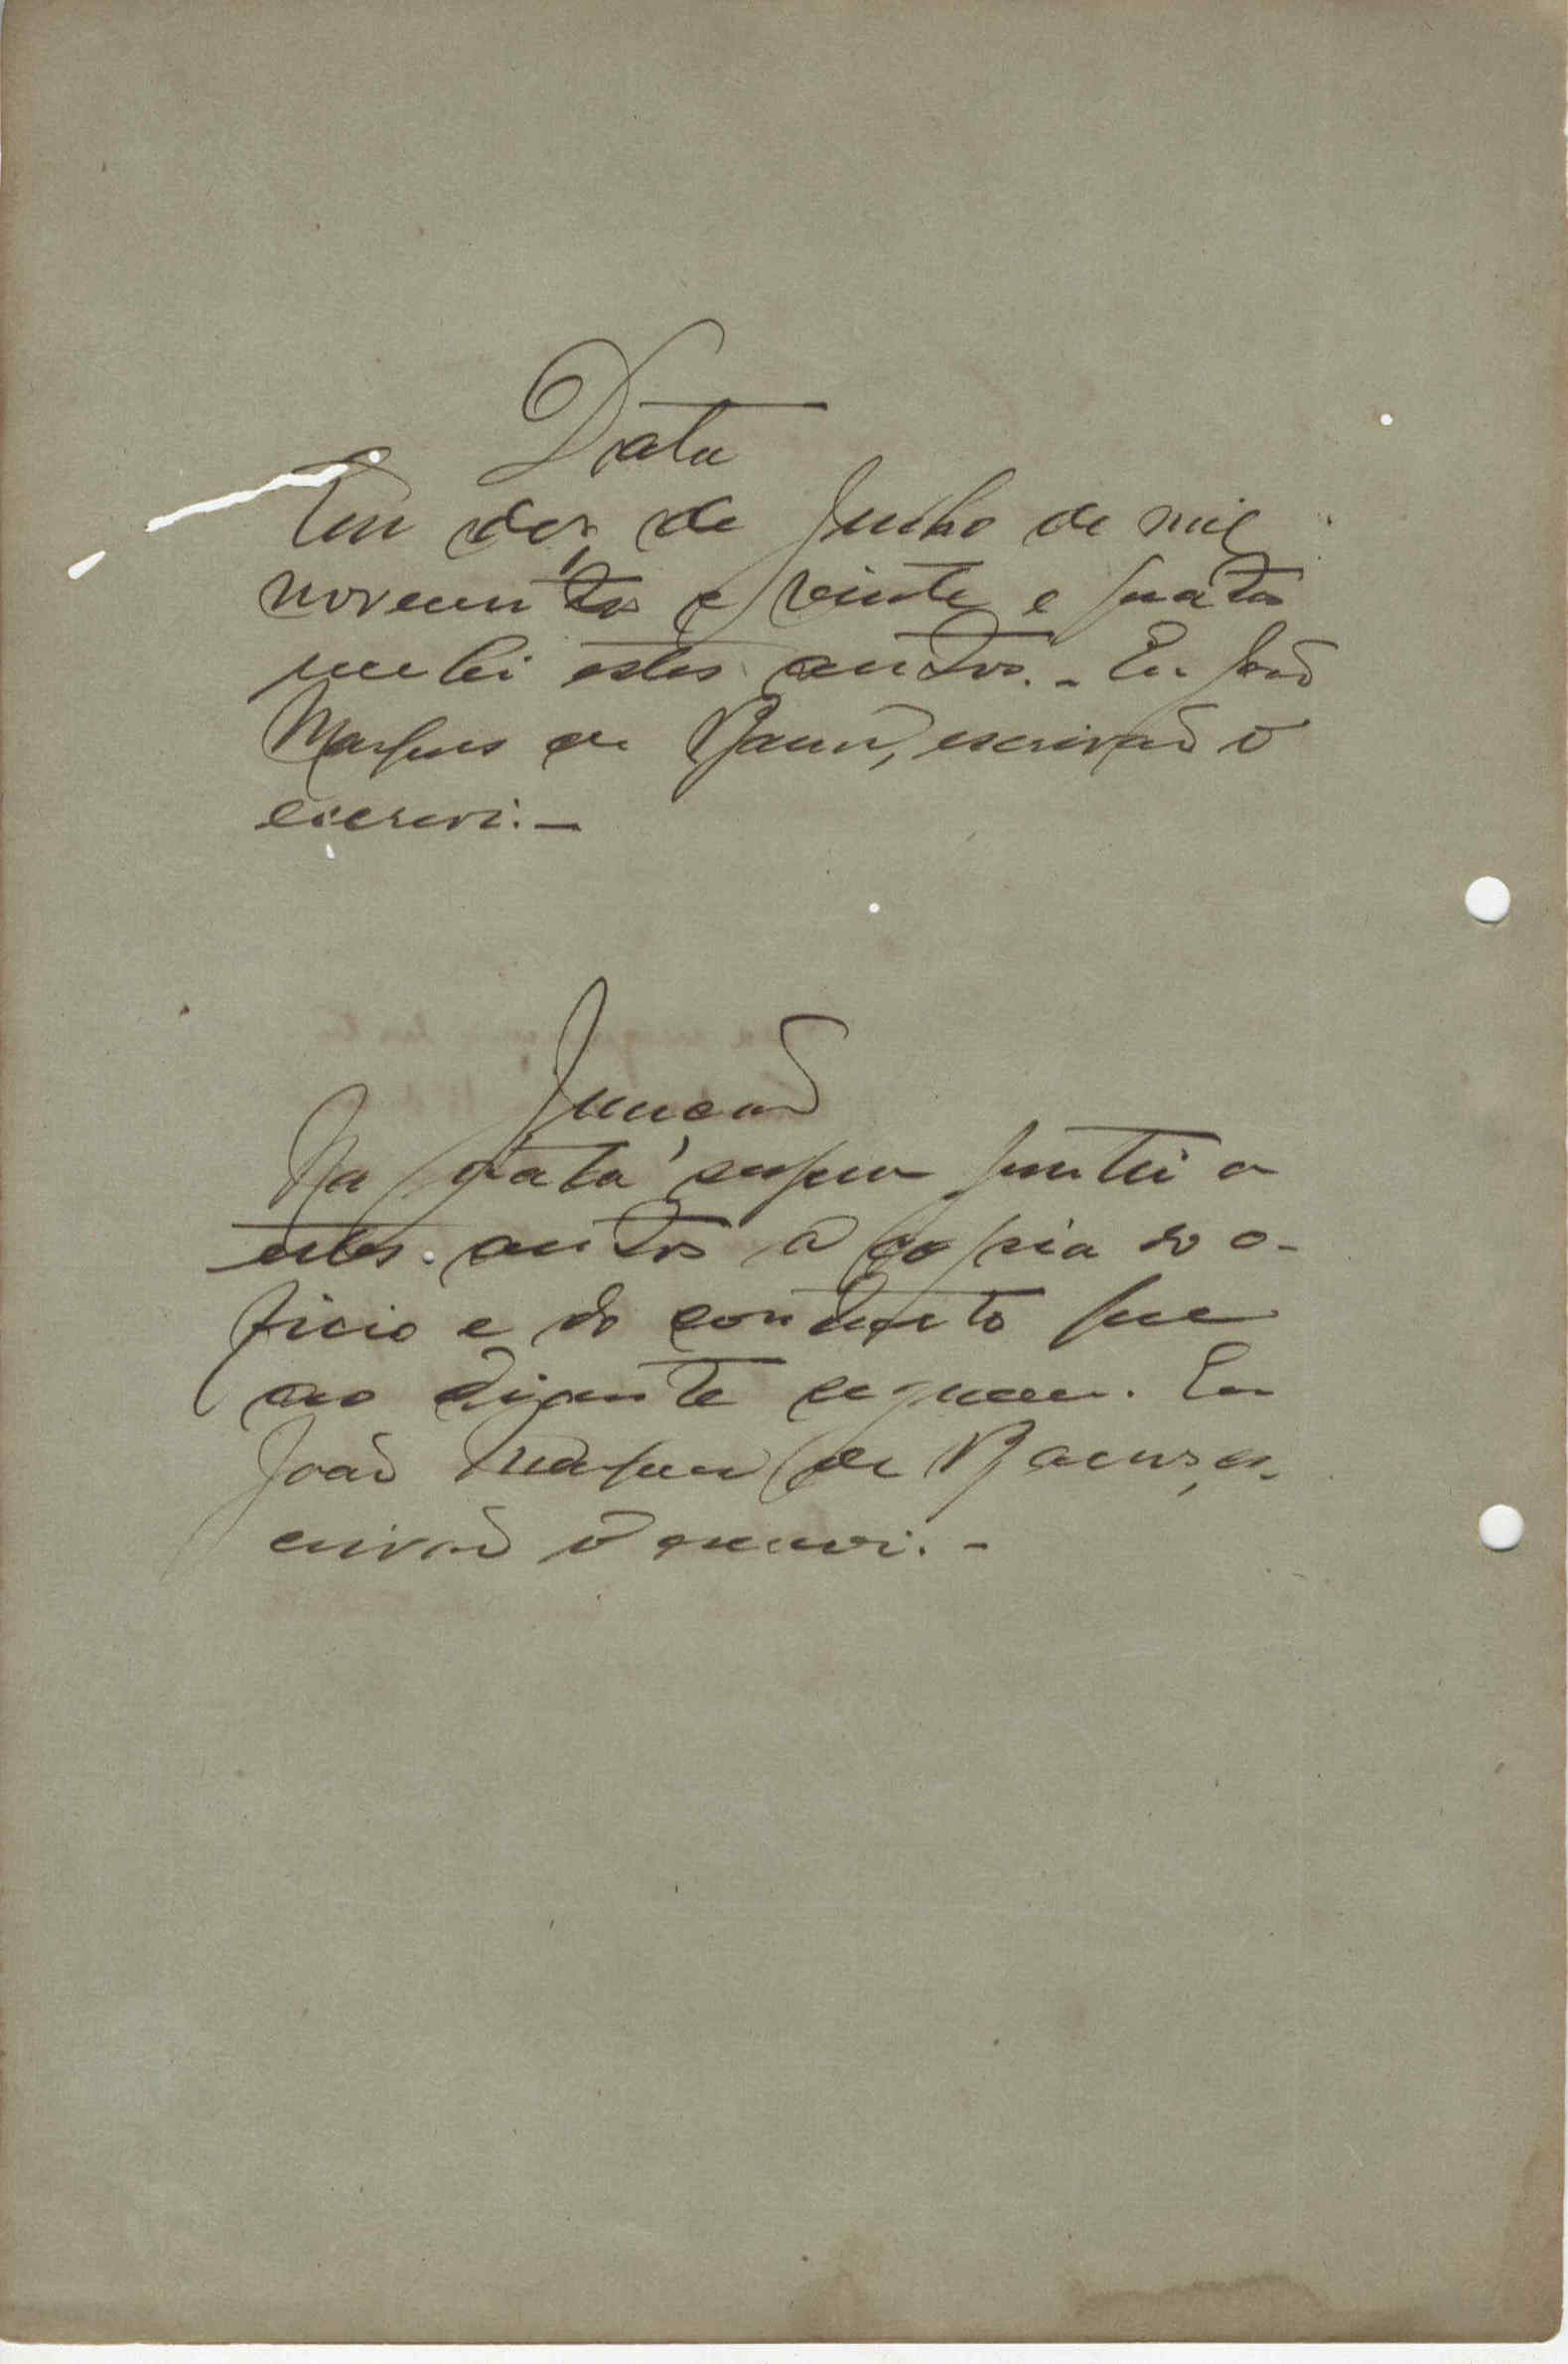 Data
Em dez de Junho de mil
novecentos e vinte e quatro
recebi estes autos. - Eu João
Marques de escrivão o
escrevi. -
Juncção
Na data supra juntei a
estes autos a copia do o-
ficio e do que
ao diante seguem. Eu
João Marques de es-
crivão o escrevi. -